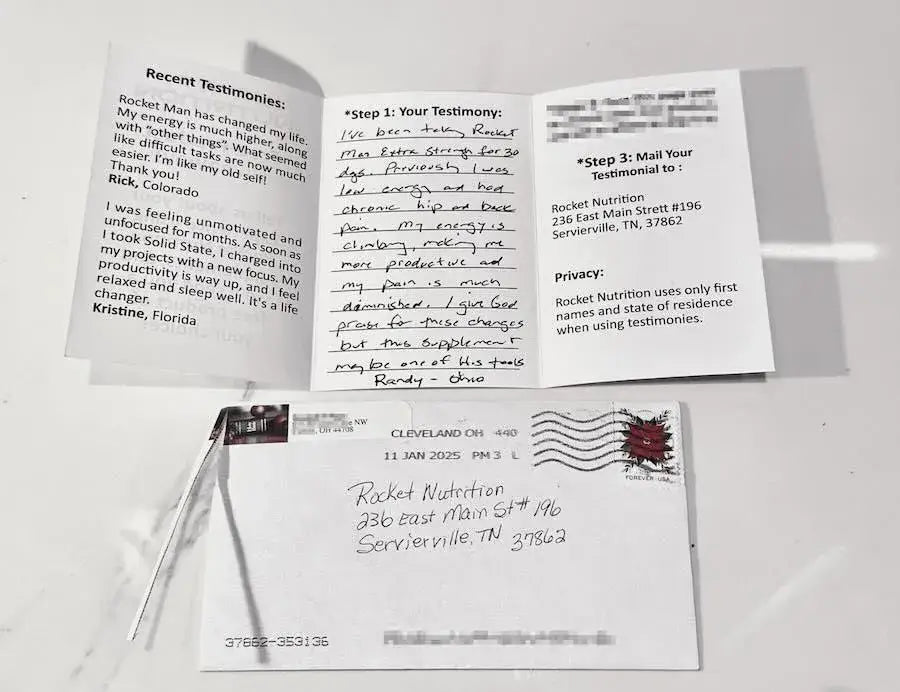 Recent Testimonies:
Rocket Man has changed my life.
My energy is much higher, along
with “other things”. What seemed
like difficult tasks are now much
easier. I’m like my old self!
Thank you!
Rick, Colorado
I was feeling unmotivated and
unfocused for months. As soon as
I took Solid State, I charged into
my projects with a new focus. My
productivity is way up, and I feel
relaxed and sleep well. It's a life
changer.
Kristine, Florida
*Step 1: Your Testimony:
I've been taking Rocket
Man Extra Strength for 30
days. Previously I was
low energy and had
chronic hip and back
pain. My energy is
climbing, making me
more productive and
my pain is much
diminished. I give God
praise for these changes
but this supplement
maybe one of His tools
Randy - Ohio
*Step 3: Mail Your
Testimonial to :
Rocket Nutrition
236 East Main Strett #196
Servierville, TN, 37862
Privacy:
Rocket Nutrition uses only first
names and state of residence
when using testimonies.
NW
OH 44708
CLEVELAND OH 440
11 JAN 2025 PM 3 L
FOREVER USA
Rocket Nutrition
236 East Main St # 196
Servierville, TN 37862
37862-353136